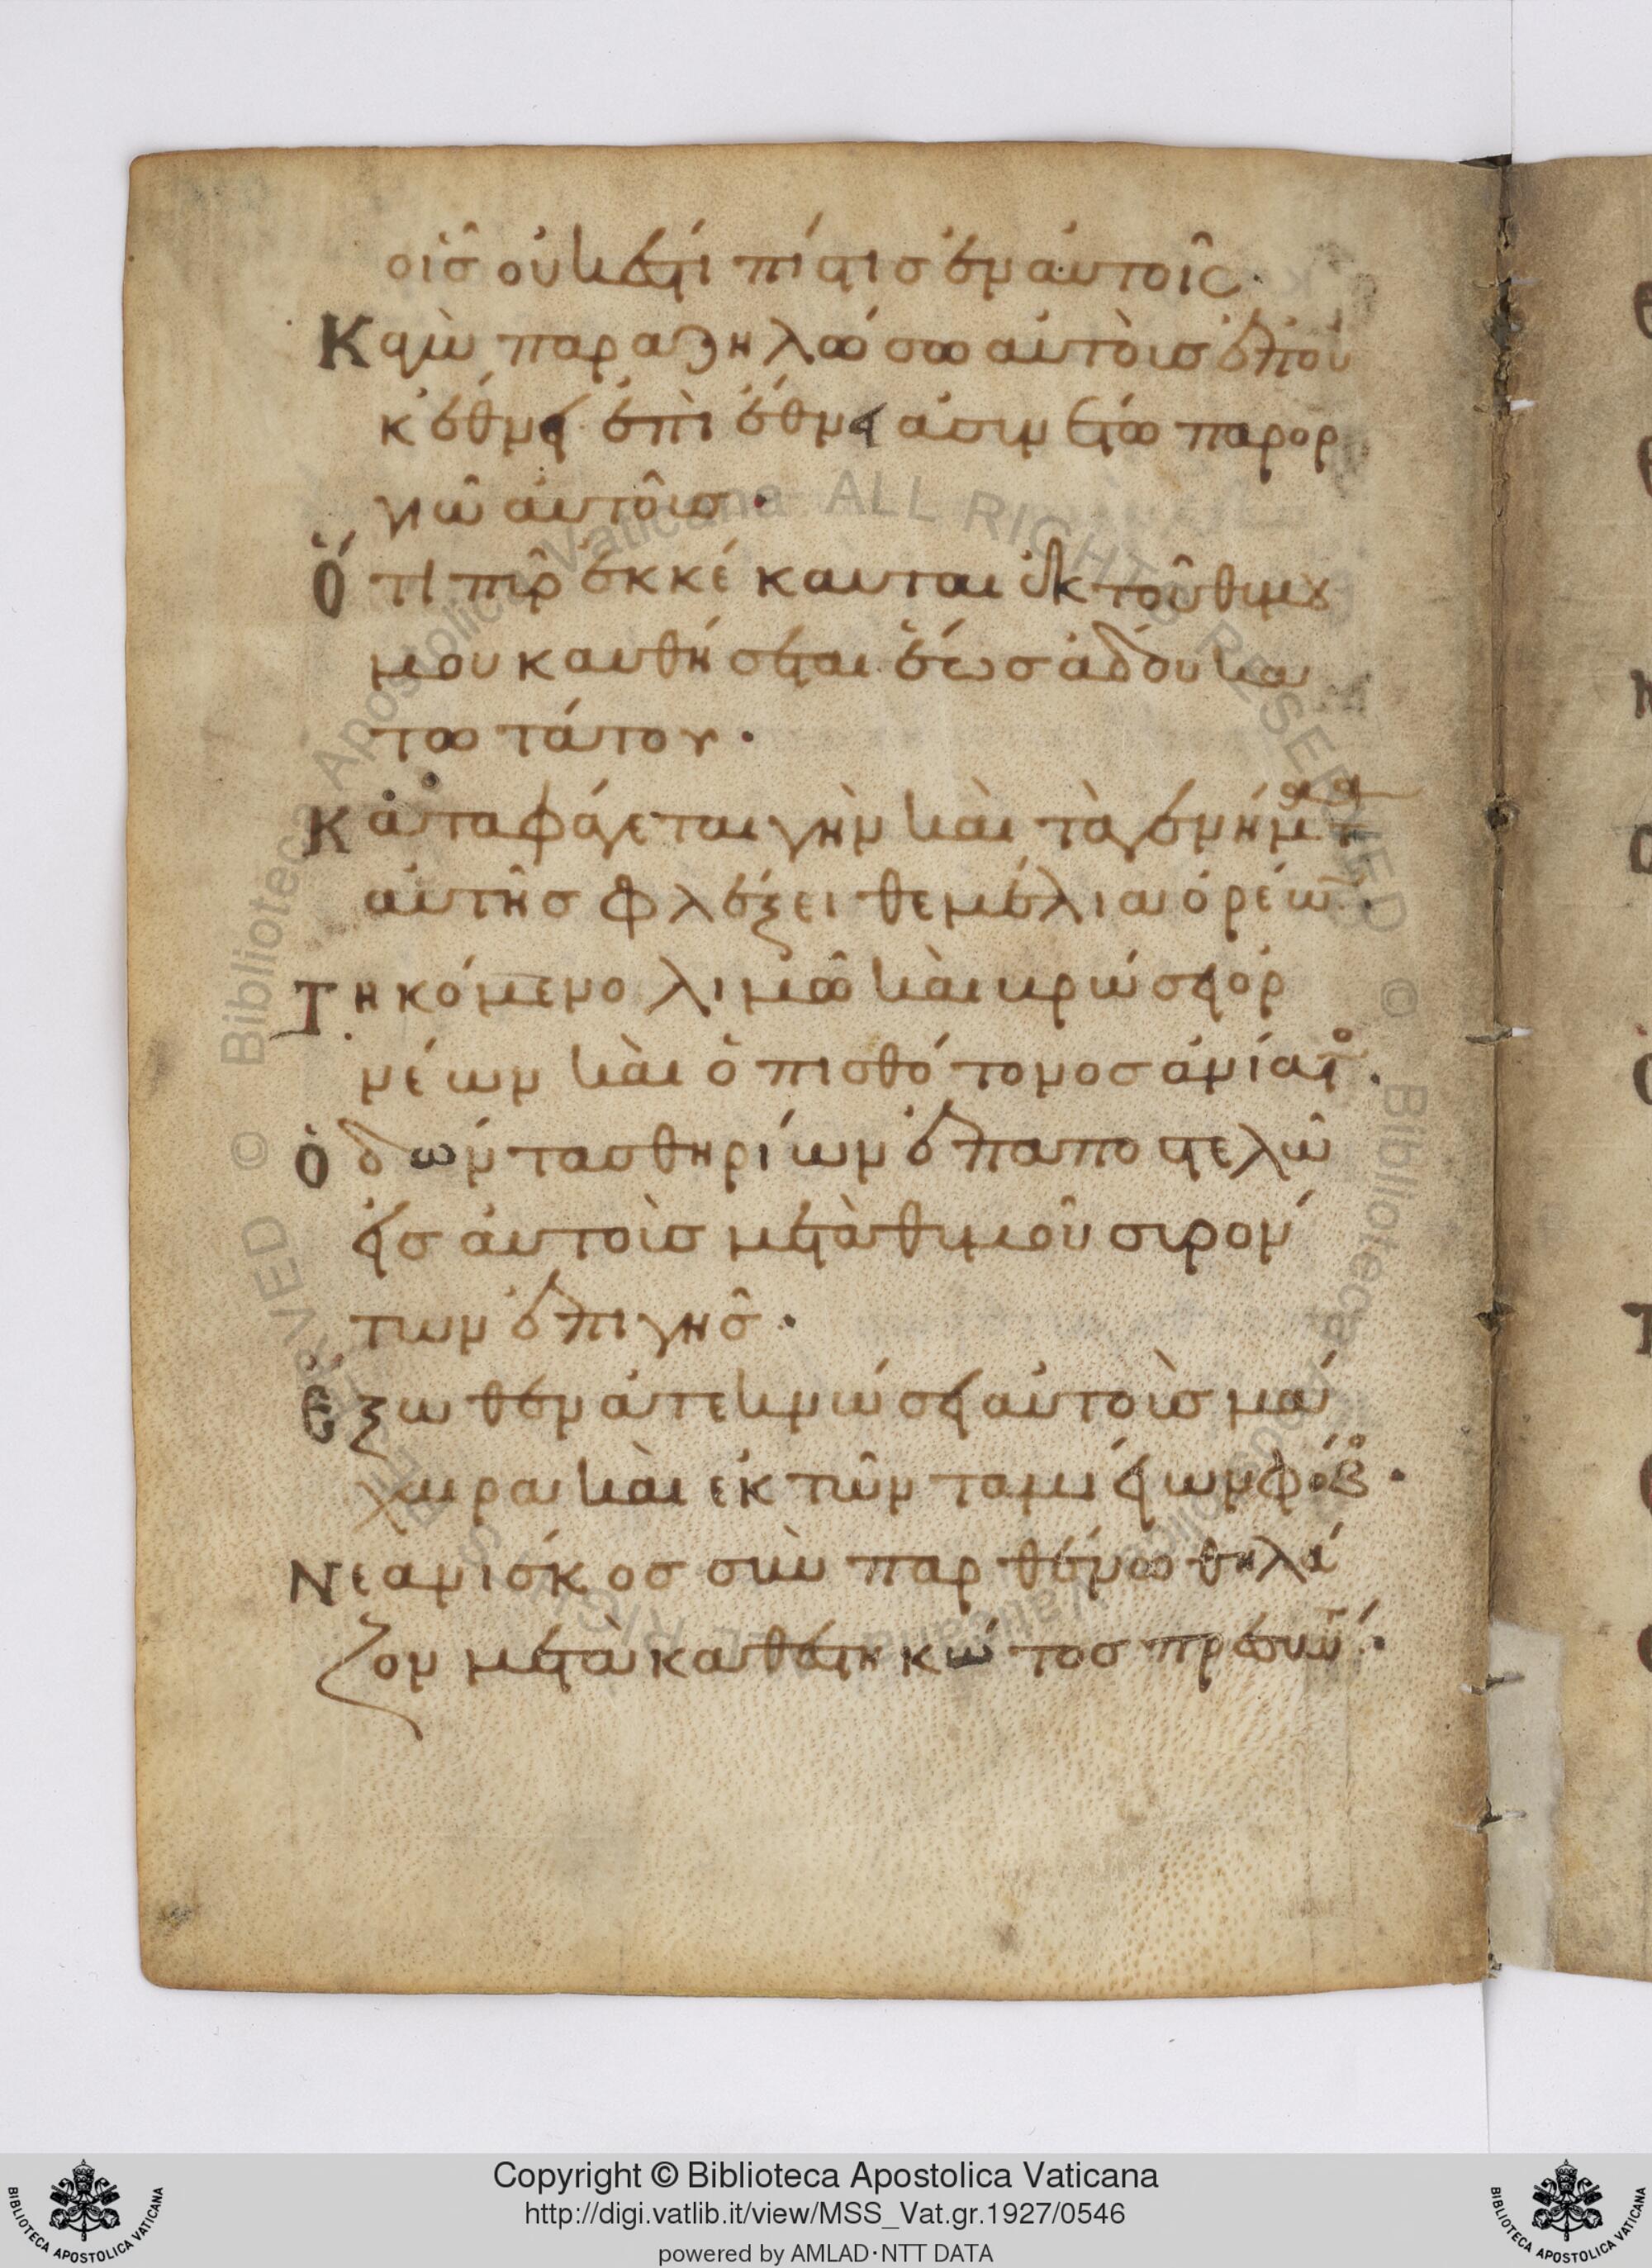 οἷσ οὐκέστι πίστισ ἐν ἀυτοῖς·
Κἀγὼ παραζηλώσω αὐτοὺσ ἐπ' οὐ
κ ἔθνει ἐπὶ ἔθνει ἀσυνέτω παρορ
γιῶ ἀυτοῦσ·
Ὅτι πῦρ ἐκκέκαυται ἐκ τοῦ θυμου
μου καυθήσεται ἕωσ ἅδου κα
τωτάτου·
Καταφάγεται γὴν καὶ τὰ γενήματα
αὐτῆσ φλέξει θεμέλια ὀρέων·
Τηκόμενοι λιμῶ καὶ βρώσει ὀρ
νέων καὶ ὀπισθότονοσ ἀνίατος·
Ὀδόντασ θηρίων ἐπαποστελῶ
εἰσ ἀυτοὺσ μετὰ θυμοῦ συρόν
των ἐπὶ γῆσ·
Ἔξωθεν ἀτεκνώσει αὐτοὺσ μά
χαιρα καὶ ἐκ τῶν ταμείων φόβος·
Νεανίσκοσ σὺν παρθένω θηλά
ζον μετὰ καθεστηκώτοσ πρεσβύτου·
Copyright © Biblioteca Apostolica Vaticana
http://digi.vatlib.it/view/MSS_Vat.gr.1927/0546
powered by AMLAD·NTT DATA